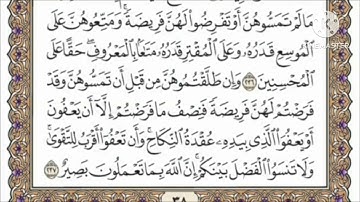 مَا لَمْ تَمَسُّوهُنَّ أَوْ تَفْرِضُوا۟ لَهُنَّ فَرِيضَةً ۚ وَمَتِّعُوهُنَّ عَلَى
ٱلْمُوسِعِ قَدَرُهُۥ وَعَلَى ٱلْمُقْتِرِ قَدَرُهُۥ مَتَـٰعًۢا بِٱلْمَعْرُوفِ ۖ حَقًّا عَلَى
ٱلْمُحْسِنِينَ ٢٣٦ وَإِن طَلَّقْتُمُوهُنَّ مِن قَبْلِ أَن تَمَسُّوهُنَّ وَقَدْ
فَرَضْتُمْ لَهُنَّ فَرِيضَةً فَنِصْفُ مَا فَرَضْتُمْ إِلَّآ أَن يَعْفُونَ
أَوْ يَعْفُوَا۟ ٱلَّذِى بِيَدِهِۦ عُقْدَةُ ٱلنِّكَاحِ ۚ وَأَن تَعْفُوٓا۟ أَقْرَبُ لِلتَّقْوَىٰ ۚ
وَلَا تَنسَوُا۟ ٱلْفَضْلَ بَيْنَكُمْ ۚ إِنَّ ٱللَّهَ بِمَا تَعْمَلُونَ بَصِيرٌ ٢٣٧
٣٨